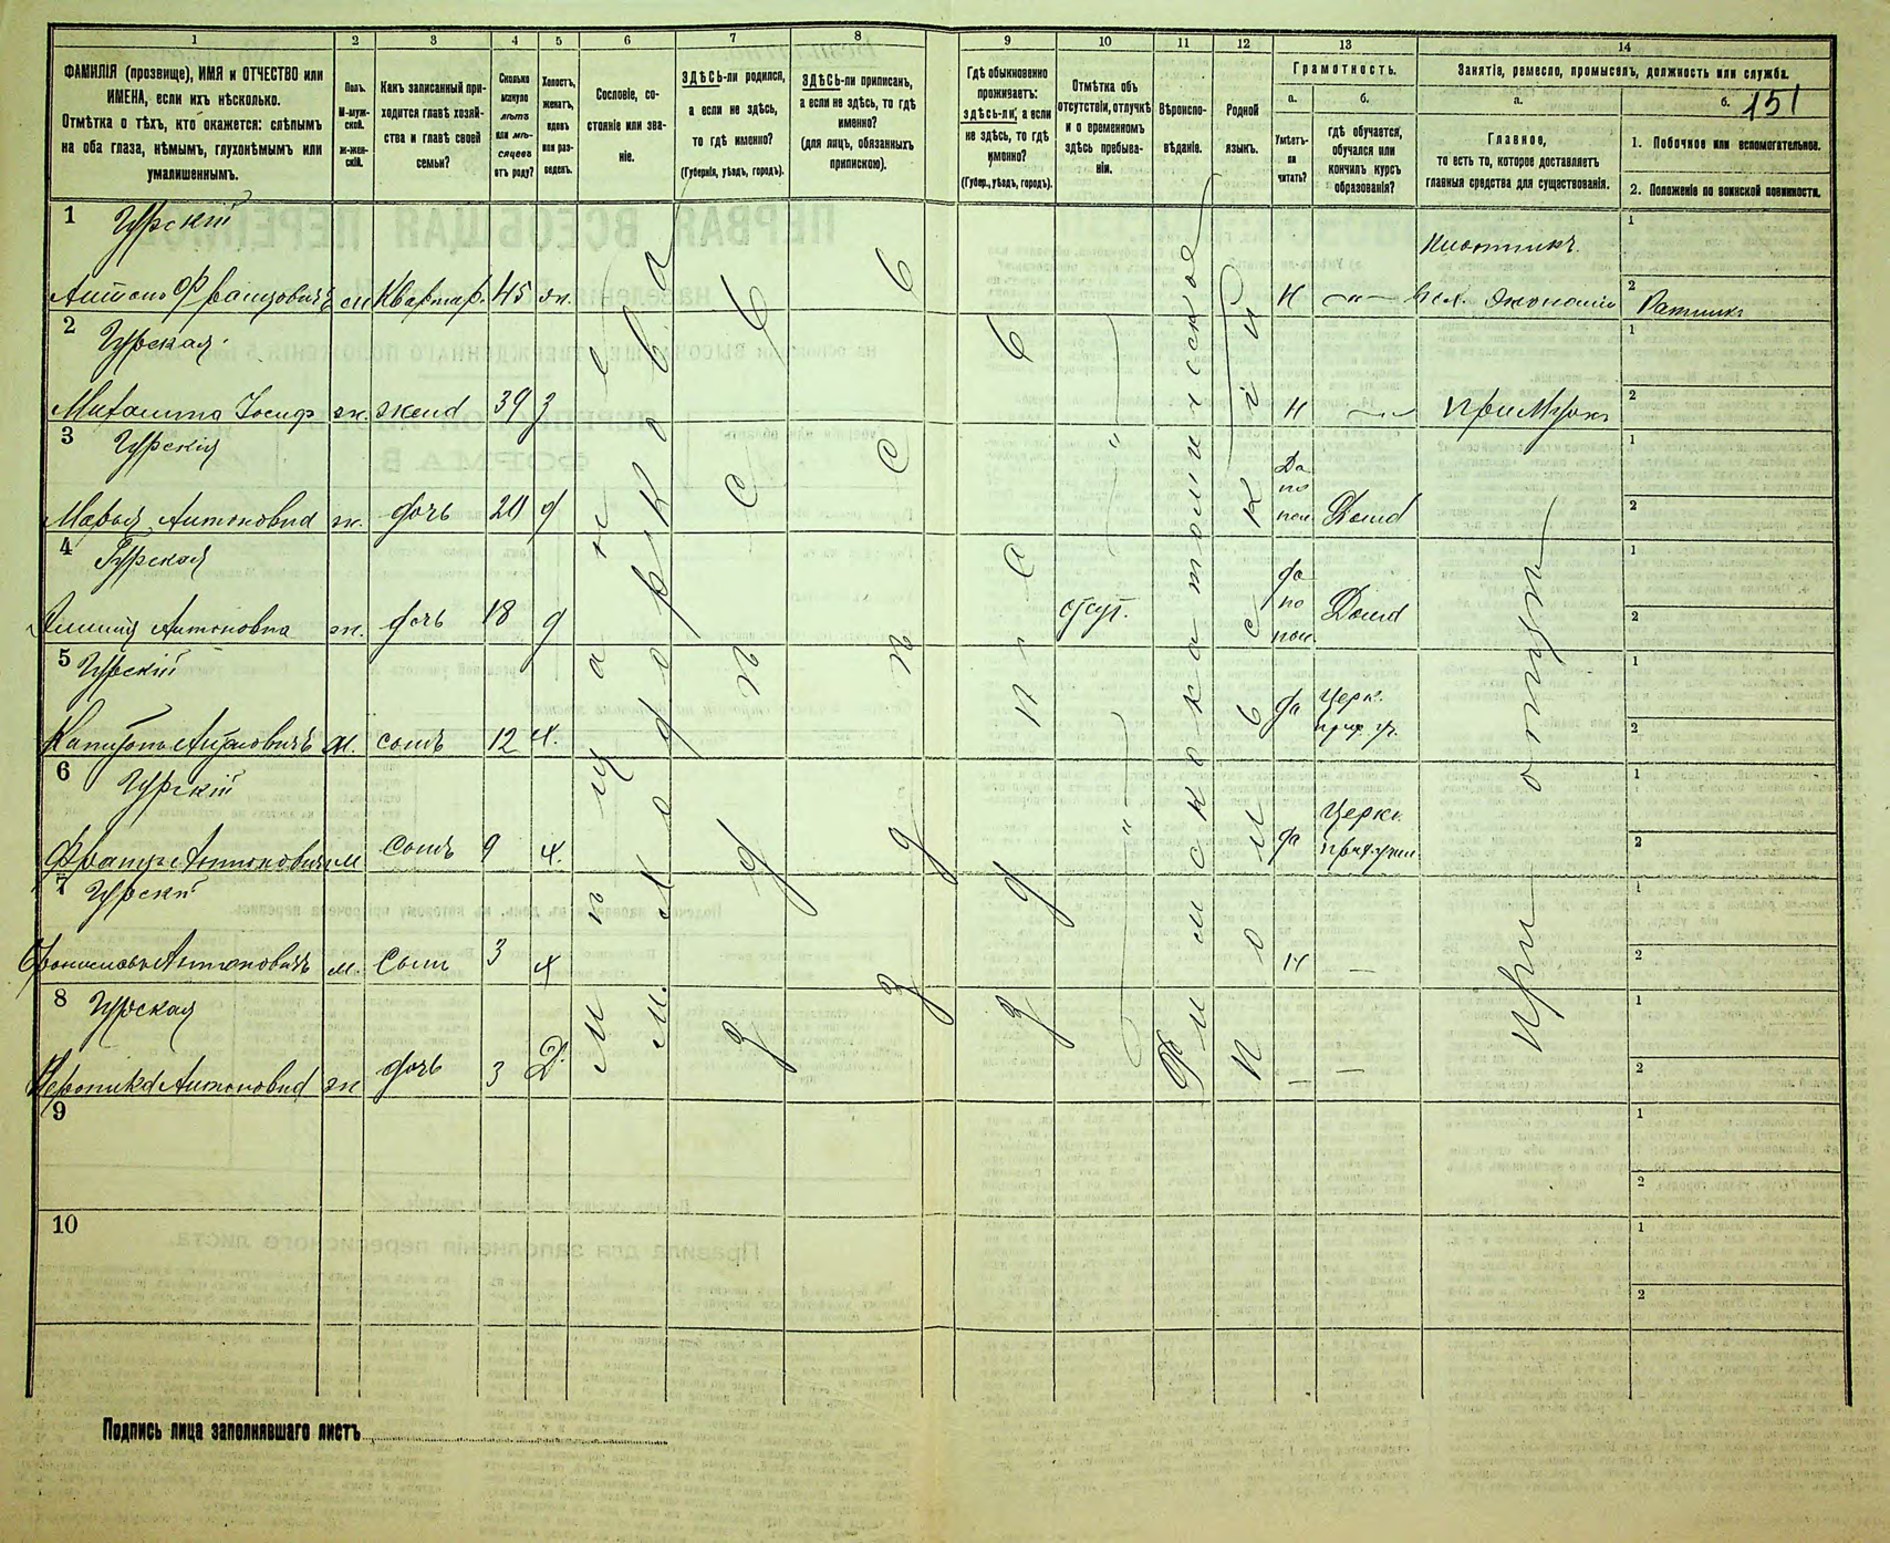 1 2 3 4 5 6 7 8 9 10 11 12 13 14
ФАМИЛІЯ (прозвище), ИМЯ и ОТЧЕСТВО или
ИМЕНА, если ихъ нѣсколько.
Отмѣтка о тѣхъ, кто окажется: слѣпымъ
на оба глаза, нѣмымъ, глухонѣмымъ или
умалишеннымъ.
Полъ.
М-муж-
ской.
ж-жен-
скій.
Какъ записанный при-
ходится главѣ хозяй-
ства и главѣ своей
семьи?
Сколько
минуло
лѣтъ
или мѣ-
сяцевъ
отъ роду?
Холостъ,
женатъ,
вдовъ
или раз-
веденъ.
Сословіе, со-
стояніе или зва-
ніе.
ЗДѢСЬ-ли родился,
а если не здѣсь,
то гдѣ именно?
(Губернія, уѣздъ, городъ).
ЗДѢСЬ-ли приписанъ,
а если не здѣсь, то гдѣ
именно?
(для лицъ, обязанныхъ
припискою).
Гдѣ обыкновенно
проживаетъ:
здѣсь-ли, а если
не здѣсь, то гдѣ
именно?
(Губер., уѣздъ, городъ).
Отмѣтка объ
отсутствіи, отлучкѣ
и о временномъ
здѣсь пребыва-
ніи.
Вѣроиспо-
вѣданіе.
Родной
языкъ.
Грамотность.
а.
Умѣетъ-
ли
читать?
б.
гдѣ обучается,
обучался или
кончилъ курсъ
образованія?
Занятія, ремесло, промыселъ, должность или служба.
а.
Главное,
то есть то, которое доставляетъ
главныя средства для существованія.
б. 151
1. Побочное или вспомогательное.
2. Положеніе по воинской повинности.
1 Гурскій
Антонъ Францовичъ м Квартир. 45 ж. Н —"— Ратникъ
2 Гурская
жена 39 з Н при мужѣ
3 Гурскія
Марья Антоновна ж. дочь 20 д Да по пол. Дома
4 Гурская
Антоновна ж. дочь 18 д отсут. да по пол. Дома
5 Гурскій
м. сынъ 12 х. да Церк. прих. уч.
6 Гурскій
Францъ Антоновичъ м сынъ 9 х. да Церк. прих. учил.
7 Гурскій
Брониславъ Антоновичъ м. Сынъ 3 х Н —
8 Гурская
Вероника Антоновна ж дочь 3 Д. — —
9
10
Здѣсь
Здѣсь
Здѣсь
Римскокатолическое
Польскій
при отцѣ
Подпись лица заполнявшаго листъ